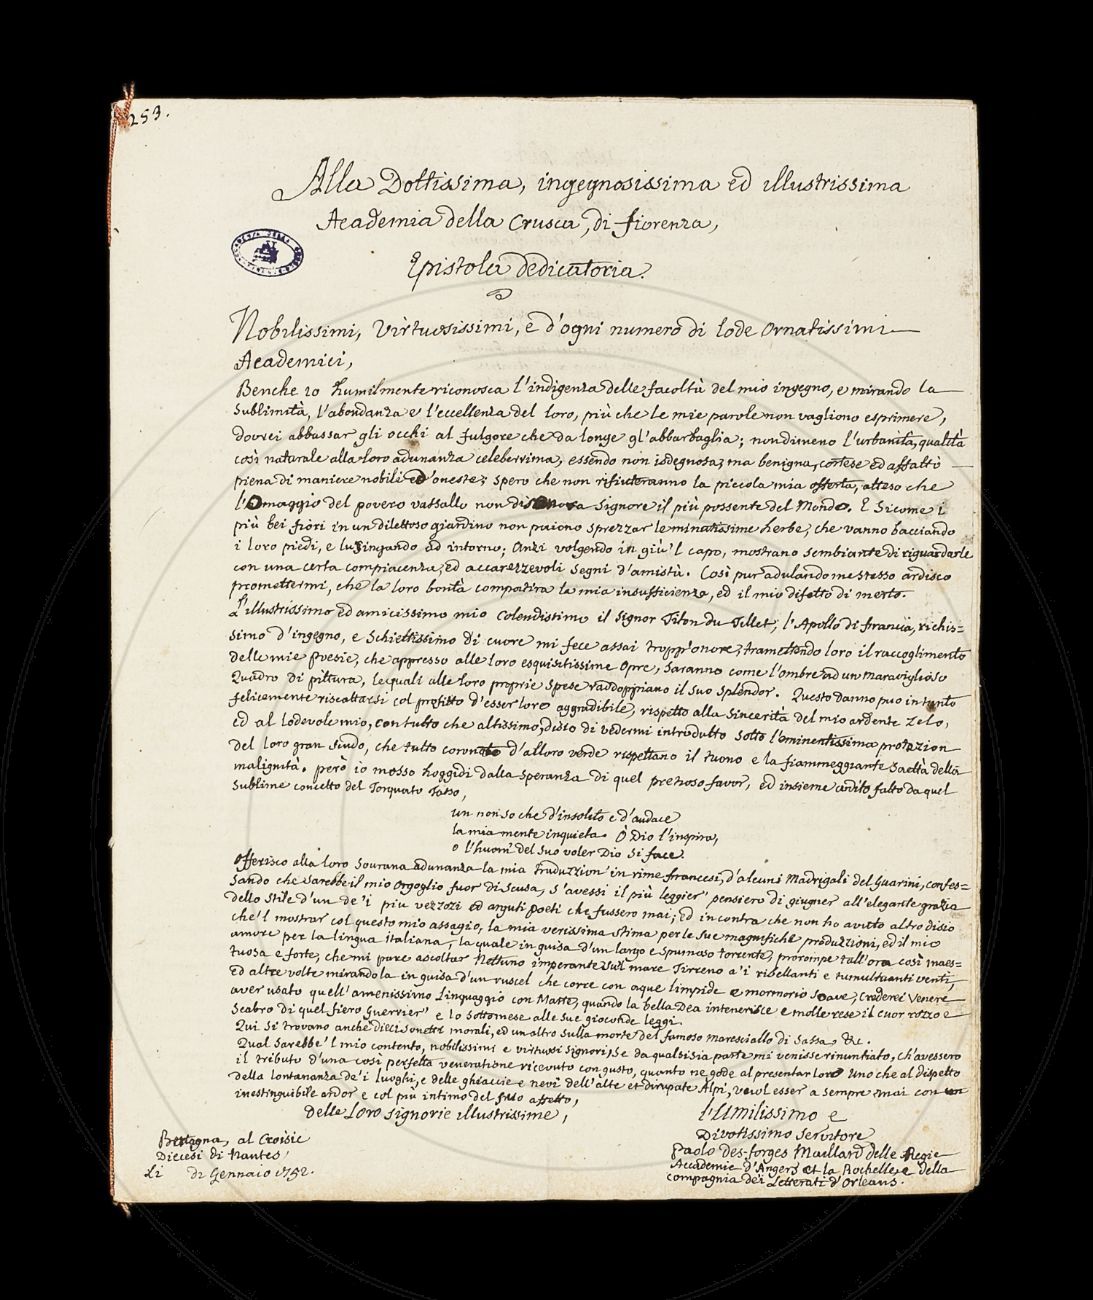 253.
Alla Dottissima, ingegnosissima ed illustrissima
Academia della Crusca, di fiorenza,
Epistola dedicatoria.
Nobilissimi, Virtuosissimi, e d'ogni numero di lode ornatissimi
Academici,
Benche io humilmente riconosca l'indigenza delle facoltà del mio ingegno, e mirando la
Sublimità, l'abondanza e l'eccellenza del loro, più che le mie parole non vagliono esprimere,
dovrei abbassar gli occhi al fulgore che da longe gl'abbarbaglia; nondimeno l'urbanità, qualità
così naturale alla loro adunanza celeberrima, essendo non isdegnosa, ma benigna, cortese ed affatto
piena di maniere nobili ed oneste; spero che non rifiuteranno la piccola mia offerta, atteso che
l'omaggio del povero vassallo non disonora Signore il più possente del Mondo. E Sicome i
più bei fiori in un dilettoso giardino non paiono sprezzar le minutissime herbe, che vanno bacciando
i loro piedi, e lusingando ad intorno; Anzi volgendo in giù 'l capo, mostrano sembiante di riguardarle
con una certa compiacenza, ed accarezzevoli segni d'amistà. Così pur adulando me stesso ardisco
promettermi, che la loro bontà compatira la mia insufficienza, ed il mio difetto di merto.
L'illustrissimo ed amicissimo mio Colendissimo il Signor Titon du Tillet, l'Apollo di francia, richis=
simo d'ingegno, e Schiettissimo di cuore mi fece assai tropp'onore, tramettendo loro il raccoglimento
delle mie Poesie, che appresso alle loro esquisitissime Opre, Saranno come l'ombre ad un maraviglioso
Quadro di pittura, le quali alle loro proprie spese raddoppiano il suo splendor. Questo danno può in tanto
felicemente riscattarsi col profitto d'esser loro aggradibile, rispetto alla Sincerità del mio ardente Zelo,
ed al lodevole mio, con tutto che altissimo, disio di vedermi introdutto sotto l'eminentissima protezion
del loro gran Scudo, che tutto coronato d'alloro verde rispettano il tuono e la fiammeggiante Saetta della
malignità. però io mosso hoggidì dalla speranza di quel prezioso favor, ed insieme ardito fatto da quel
Sublime concetto del Torquato Tasso,
un non so che d'insolito e d'audace
la mia mente inquieta. Ò Dio l'inspira,
o l'huom del suo voler Dio si face.
Offerisco alla loro Sourana adunanza la mia Traduzzion in rime francesi, d'alcuni Madrigali del Guarini, confes=
sando che Sarebbe il mio orgoglio fuor di Scusa, s'avessi il più leggier pensiero di giugner all'elegante grazia
dello Stile d'un de'i più vezzozi ed arguti Poeti che fussero mai; ed in contra che non ho avuto altro disio
che'l mostrar col questo mio assagio, la mia verissima stima per le sue magnifiche produzzioni, ed il mio
amore per la lingua italiana, la quale in guisa d'un largo e spumoso torrente, prorompe tall'ora così maes=
tuosa e forte, che mi pare ascoltar Nettuno imperante sul mare Tirreno a'i ribellanti e tumultuanti venti,
ed altre volte mirandola in guisa d'un ruscel che corre con aque limpide e mormorio soave, crederei Venere
aver usato quell'amenissimo linguaggio con Marte, quando la bella Dea intenerisce e molle rese il cuor rozzo e
scabro di quel fiero guerrier e lo sottomese alle sue gioconde leggi.
Qui si trovano anche dieci Sonetti morali, ed un altro sulla morte del famoso maresciallo di Sassa &c.
Qual sarebbe'l mio contento, nobilissimi e virtuosi signori, se da qualsisia parte mi venisse rinuntiato, ch'avessero
il tributo d'una così perfetta veneratione ricevuto con gusto, quanto ne gode al presentar loro Uno che al dispetto
della lontananza de'i luoghi, e delle ghiaccie e nevi dell'alte et dirupate Alpi, vuol esser a sempre mai con un
inestinguibile ardor e col più intimo del suo affetto,
delle Loro signorie illustrissime,
l'Umilissimo e
Divotissimo Servitore
Paolo des-forges Maillard delle Regie
Accademie d'Angers et la Rochelle, e della
Compagnia dei Letterati d'Orleans.
Bretagna, al Croisic
Diecesi di Nantes
Li di Gennaio 1752.